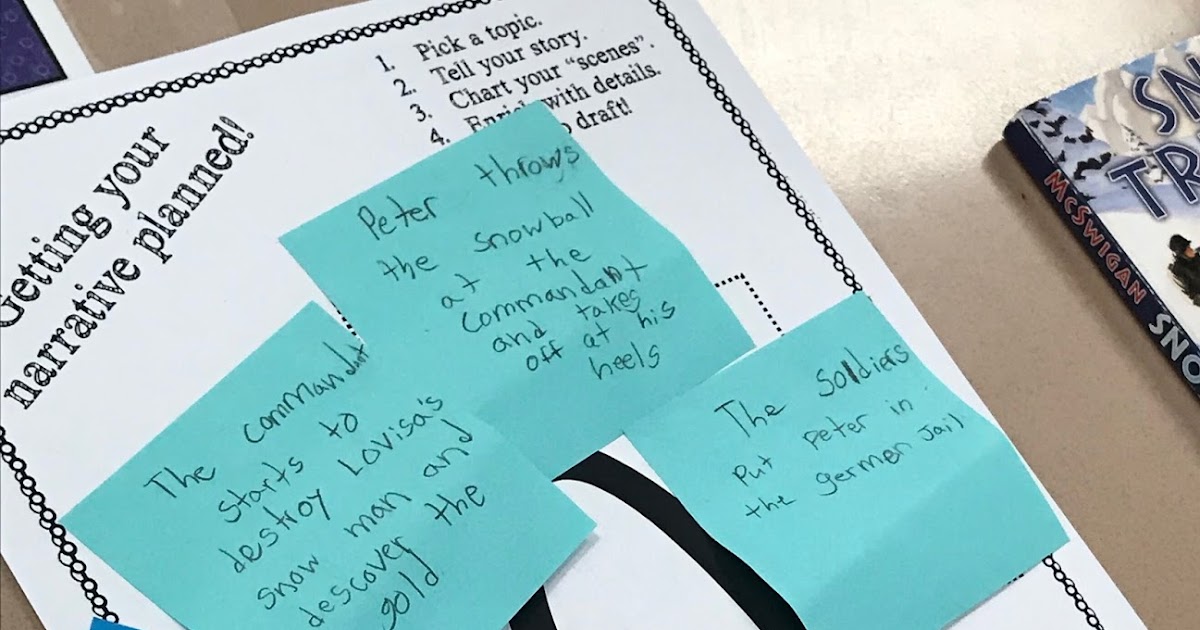 Getting your
narrative planned!
1. Pick a topic.
2. Tell your story.
3. Chart your “scenes”.
4. with details.
draft!
Peter throws
the snowball
at the
commandant
and takes
off at his
heels
The commandant
starts to
destroy Lovisa's
snow man and
descover the
gold
The Soldiers
put peter in
the germen Jail
McSWIGAN